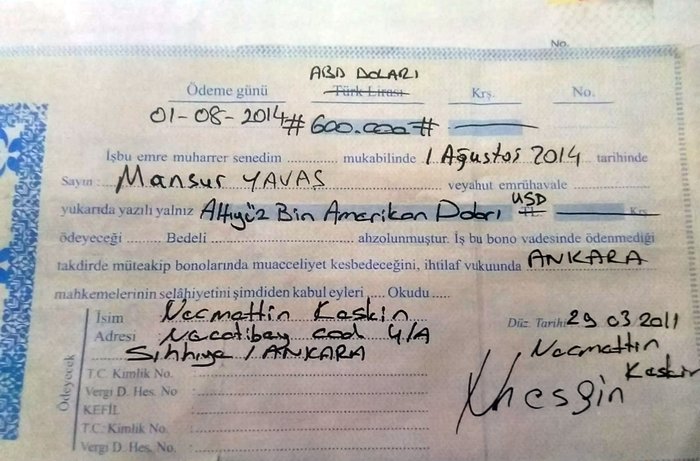 No.
ABD DOLARI
Ödeme günü Türk Lirası Krş. No.
01-08-2014 #600.000#
İşbu emre muharrer senedim .......... mukabilinde 1 Ağustos 2014 tarihinde
Sayın: Mansur YAVAŞ veyahut emrühavale
yukarıda yazılı yalnız Altıyüz Bin Amerikan Doları USD TL Krş
ödeyeceği ..... Bedeli .......... ahzolunmuştur. İş bu bono vadesinde ödenmediği
takdirde müteakip bonolarında muacceliyet kesbedeceğini, ihtilaf vukuunda ANKARA
mahkemelerinin selâhiyetini şimdiden kabul eyleri .... Okudu .....
İsim Necmettin Keskin
Adresi Necatibey cad 4/A
Sıhhiye / ANKARA
Düz. Tarihi: 29 03 2011
Necmettin
Keskin
Ödeyecek
T.C. Kimlik No.
Vergi D. Hes. No
KEFİL
T.C. Kimlik No:
Vergi D. Hes. No.